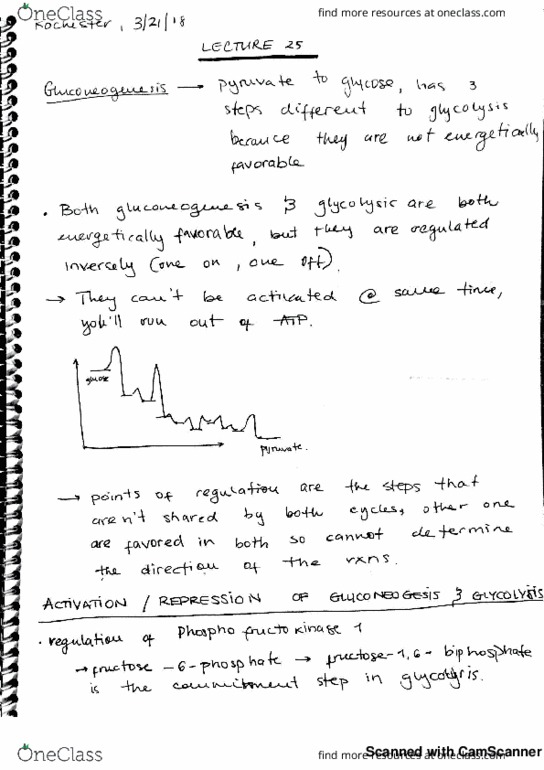 OneClass
find more resources at oneclass.com
Rochester, 3/21/18
LECTURE 25
Gluconeogenesis → pyruvate to glycose, has 3
steps different to glycolysis
because they are not energetically
favorable
• Both gluconeogenesis & glycolysis are both
energetically favorable, but they are regulated
inversely (one on, one off).
→ They can't be activated @ same time,
you'll run out of ATP.
glucose
pyruvate.
→ points of regulation are the steps that
aren't shared by both cycles, other one
are favored in both so cannot determine
the direction of the rxns.
ACTIVATION / REPRESSION OF GLUCONEOGESIS & GLYCOLYSIS
• regulation of Phosphofructokinase 1
→ fructose-6-phosphate → fructose-1,6-biphosphate
is the commitment step in glycolysis.
OneClass
find more resources at oneclass.com
Scanned with CamScanner